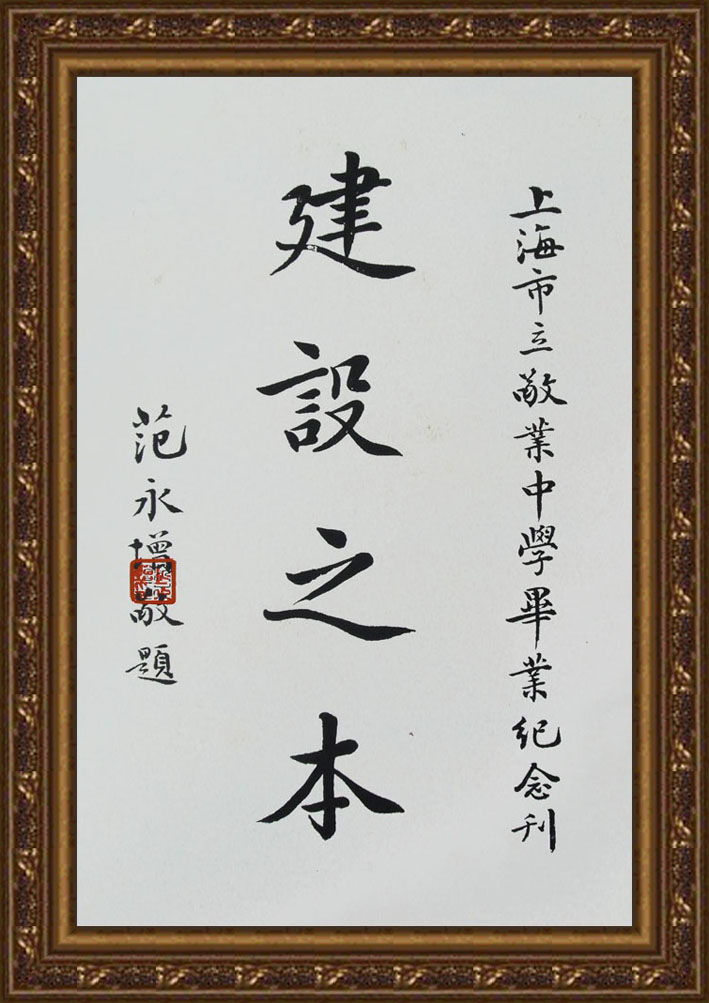 上海市立敬業中學畢業紀念刊
建設之本
范永增敬題